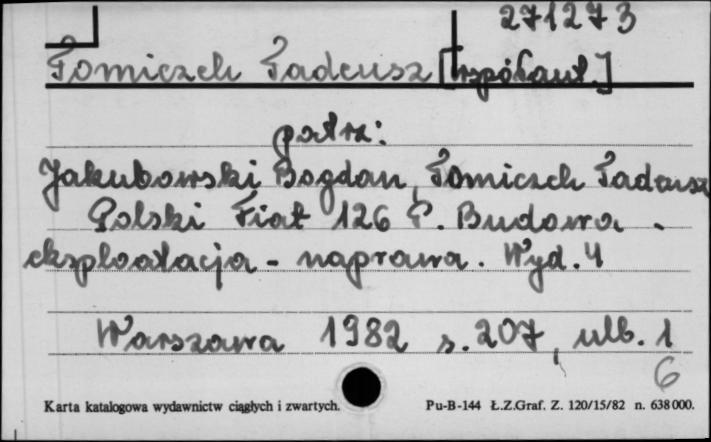 271273
Tomiczek Tadeusz [współaut.]
patrz:
Jakubowski Bogdan, Tomiczek Tadeusz
Polski Fiat 126 P. Budowa -
eksploatacja - naprawa. Wyd. 4
Warszawa 1982 s. 207, ulb. 1
6
Karta katalogowa wydawnictw ciągłych i zwartych. Pu-B-144 Ł.Z.Graf. Z. 120/15/82 n. 638000.